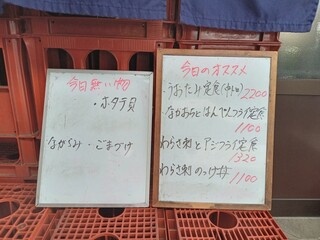 今日無い物
・ホタテ貝
ながらみ・ごまづけ
今日のオススメ
2200
なかおちとはんぺんフライ定食
1100
わらさ刺とアジフライ定食
1320
わらさ刺のっけ丼
1100